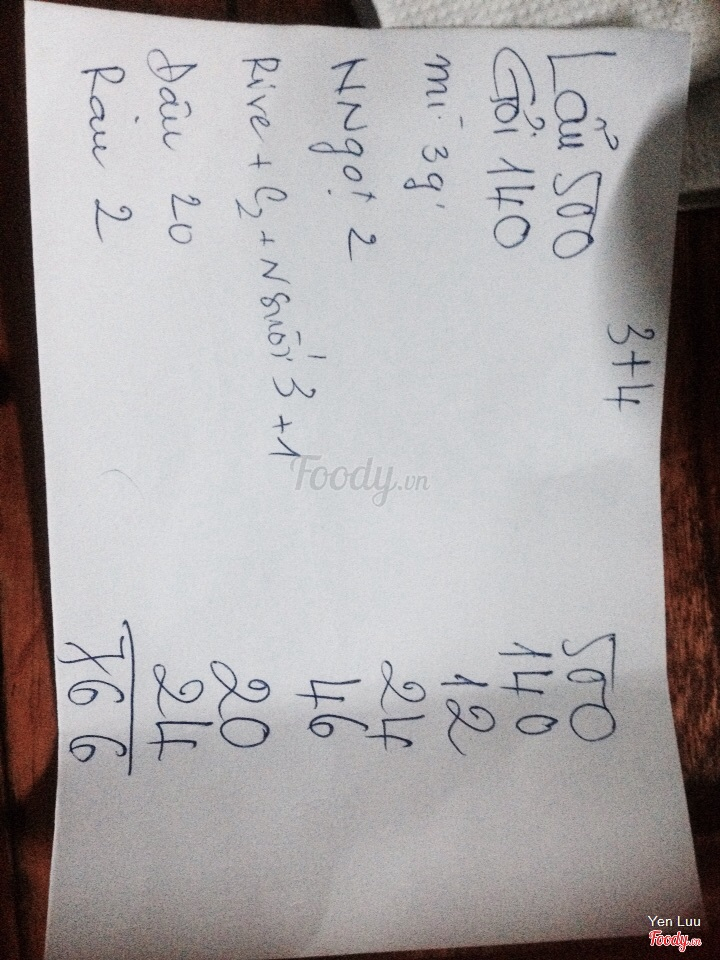 3+4
Lẩu 500
Gỏi 140
mì 3g'
NNgọt 2
Rive + C2 + Nsuối 3+1
Đậu 20
Rau 2
500
140
12
24
46
20
24
766
Foody.vn
Yen Luu
Foody.vn